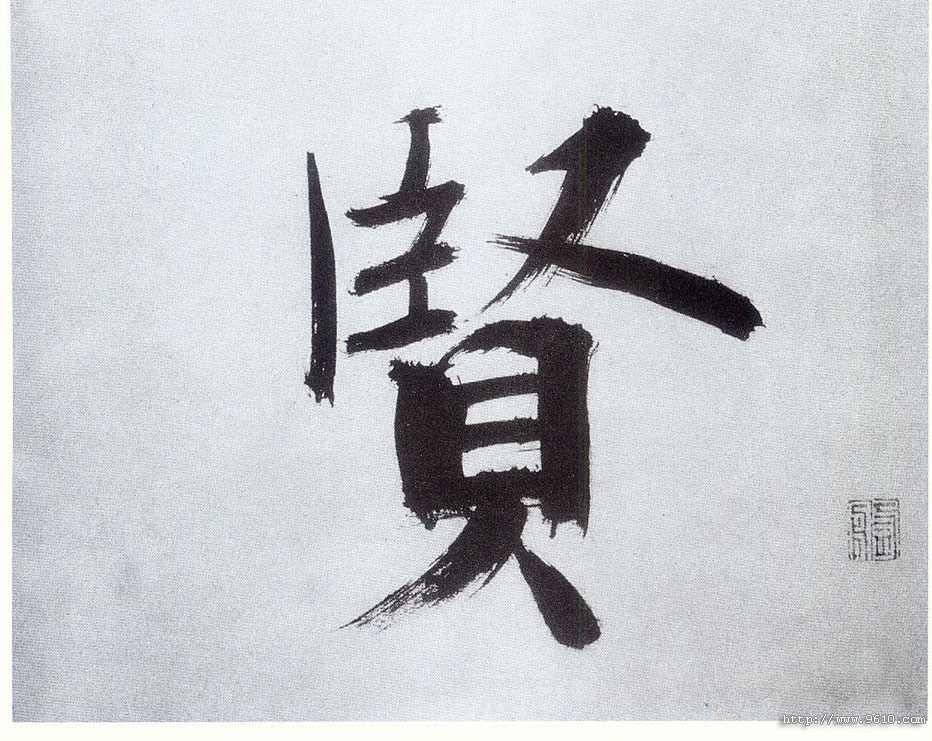 賢
http://www.9610.com